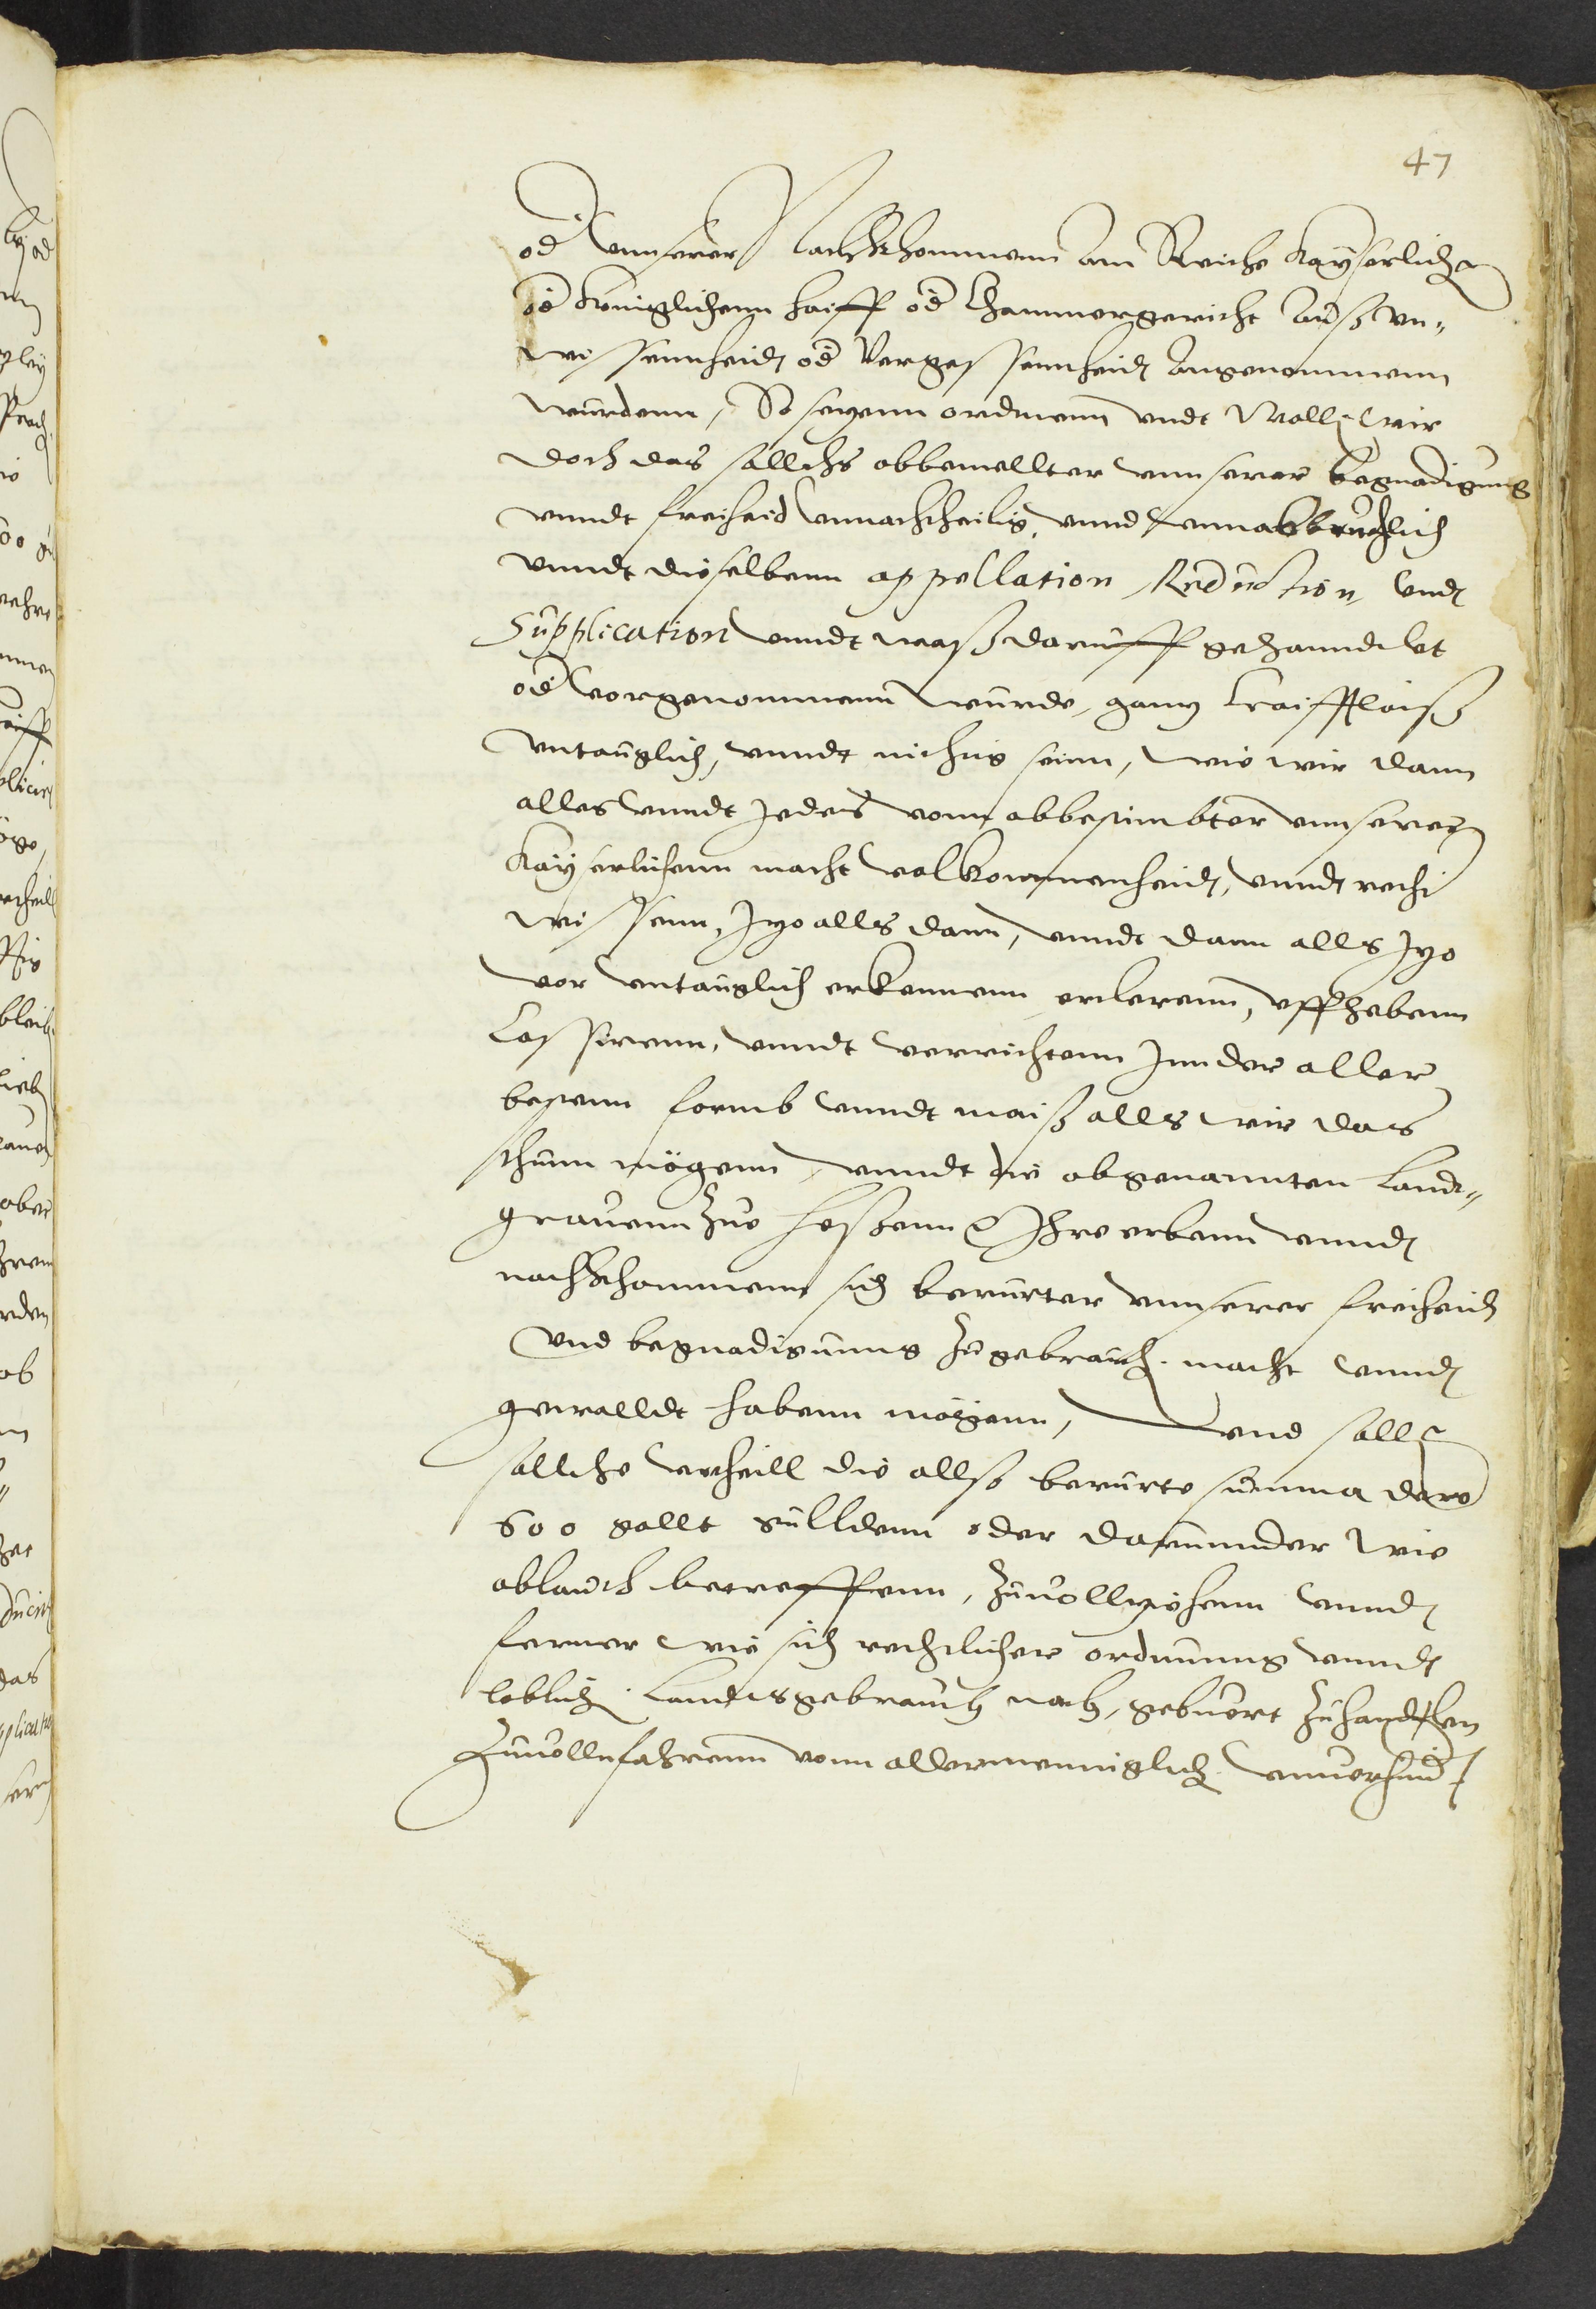 47
od vnnserer Nachkhommenn am Reiche Kayserlich
od Koniglichenn haiff od Chammergericht Auß vn-
wissennheidt od Vergessennheidt Angenommenn
wurdenn, So seyenn ordnenn vndt Woll wir
doch das sollchs obbemellter vnnserer begnadigung
vnndt freiheid vnnachtheilig, vnnd vnnabbruchlich
vnndt dieselbenn appellation Reduction vndt
Supplication vnndt waß daruff gehanndelt
od vorgenommenn wurde, gantz krafftloiß
vntauglich, vnndt nichtig seinn, wie wir dann
alles vnndt Jedes vonn obbestimbter vnnserer
Kayserlichenn macht volkommenheidt, vnndt recht
wissenn, Jtzo alls dann, vnndt dann alls Jtzo
vor vntauglich erkennenn erclerenn, vffhebenn
Cassirenn, vnndt vernichtenn Jnn der aller
bestenn formb vnndt maiß alls wir das
thunn mögenn, vnndt die obgenannten Landt-
grauenn zue heßenn Ihre erbenn vnndt
nachkhommenn sich berurter vnnserer freiheidt
vnd begnadigunng zugebrauch. macht vnndt
gewalldt habenn mögenn, vnd soll
sollche vrtheill die allso berurte summa dero
600 gollt gulldenn oder darunnder wie
oblauth betreffenn, zuvollnziehenn vnndt
ferner wie sich rechtlicher ordnunng vnndt
loblich. Landtsgebrauch nach, gebuert zuhandtlen
Zuuollnfahrenn vonn allermenniglich. vnuerhindt